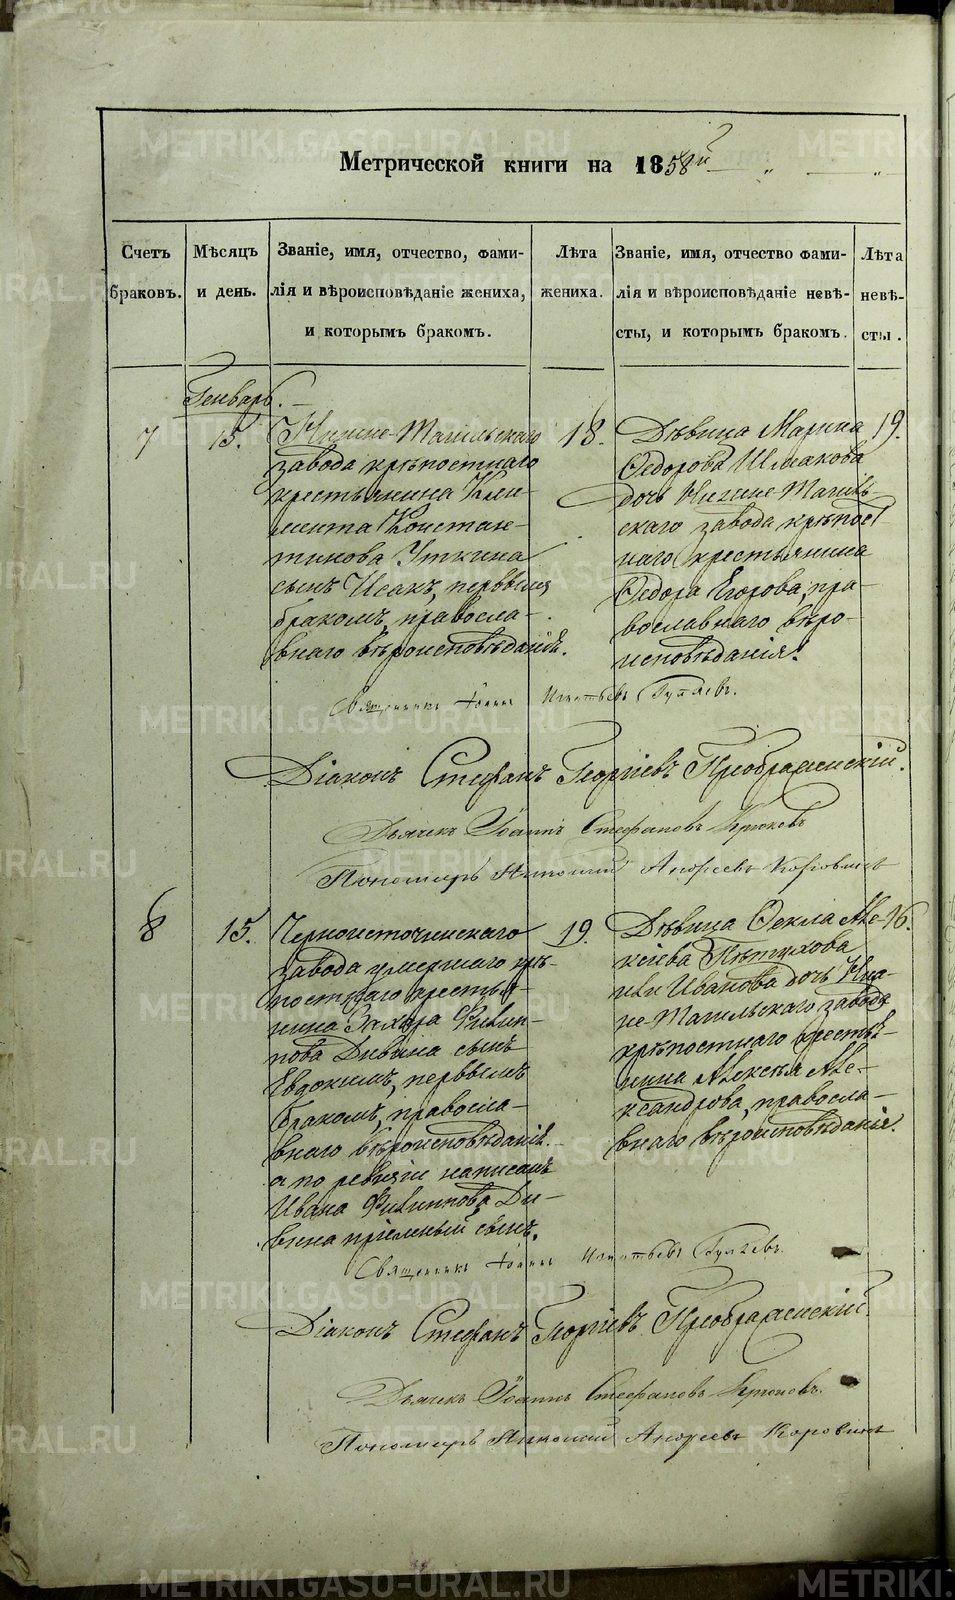 Метрической книги на 1858й
Счетъ браковъ.
Мѣсяцъ и день.
Званіе, имя, отчество, фами-
лія и вѣроисповѣданіе жениха,
и которымъ бракомъ.
Лѣта жениха.
Званіе, имя, отчество фами-
лія и вѣроисповѣданіе невѣ-
сты, и которымъ бракомъ.
Лѣта невѣ-
сты.
Генварь.
7
15.
Нижне-Тагильскаго
завода крѣпостнаго
крестьянина Кли-
мента Констан-
тинова Уткина
сынъ Исакъ, первымъ
бракомъ, правосла-
внаго вѣроисповѣданія.
18.
Дѣвица Марина
Ѳедорова Шмакова
дочь Нижне-Тагиль-
скаго завода крѣпост
наго крестьянина
Ѳедора Егорова, пра-
вославнаго вѣро-
исповѣданія.
19.
Священникъ Іоаннъ Игнатьевъ Гуляевъ.
Діаконъ Стефанъ Георгіевъ Преображенскій.
Дьячекъ Іоаннъ Стефановъ Крюковъ
Пономарь Николай Андреевъ Коровинъ
8
15.
Черноисточинскаго
завода умершаго крѣ-
постнаго крестья-
нина Захара Филип-
пова Дивина сынъ
Евдокимъ, первымъ
бракомъ, правосла-
внаго вѣроисповѣданія.
а по ревизіи написанъ
Ивана Филиппова Ди-
вина пріемный сынъ.
19.
Дѣвица Ѳекла Але-
ксіева Пѣтухова
или Иванова дочь Ниж-
не-Тагильскаго завода
крѣпостнаго крестья-
нина Алексѣя Але-
ксандрова, правосла-
внаго вѣроисповѣданія.
16.
Священникъ Іоаннъ Игнатьевъ Гуляевъ.
Діаконъ Стефанъ Георгіевъ Преображенскій.
Дьячекъ Іоаннъ Стефановъ Крюковъ.
Пономарь Николай Андреевъ Коровинъ
METRIKI.GASO-URAL.RU